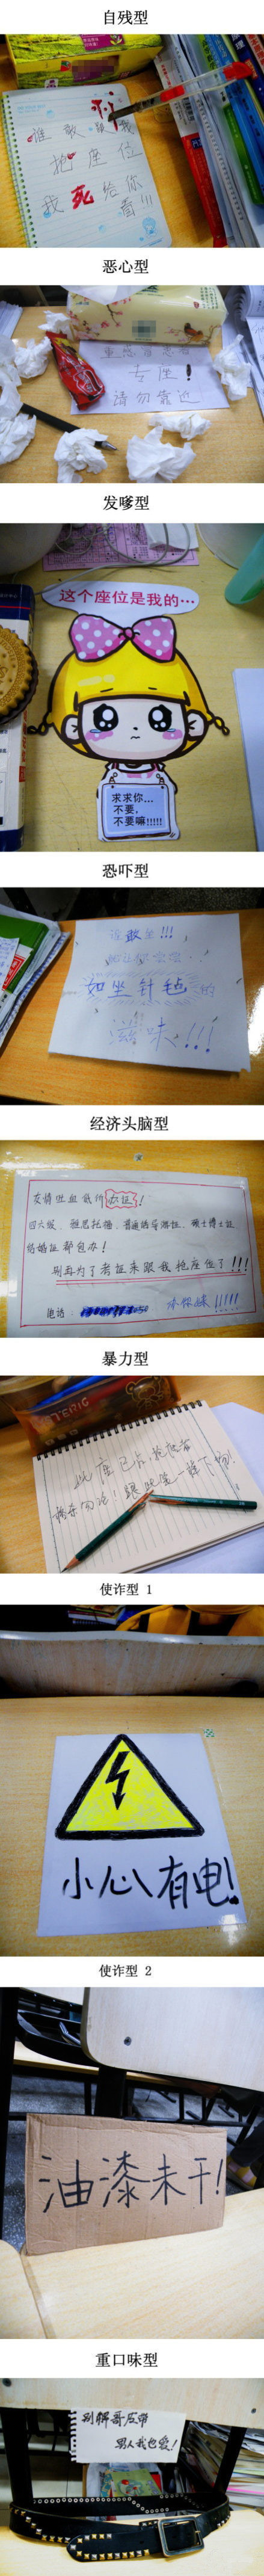 自残型
谁敢
抢座位
我死给你
看!!!
恶心型
重感冒患者
专座!
请勿靠近
发嗲型
这个座位是我的…
求求你…
不要,
不要嘛!!!!!
恐吓型
谁敢坐!!!
如坐针毡的
滋味!!!
经济头脑型
友情吐血低价办证!
四六级、雅思托福、普通话导游证、硕士博士证
结婚证都包办!
别再为了考证来跟我抢座位了!!!
电话:
暴力型
此座已占,抢座者
格杀勿论!跟此笔一样下场!
使诈型 1
小心有电!
使诈型 2
油漆未干!
重口味型
别解哥皮带
男人我也爱!